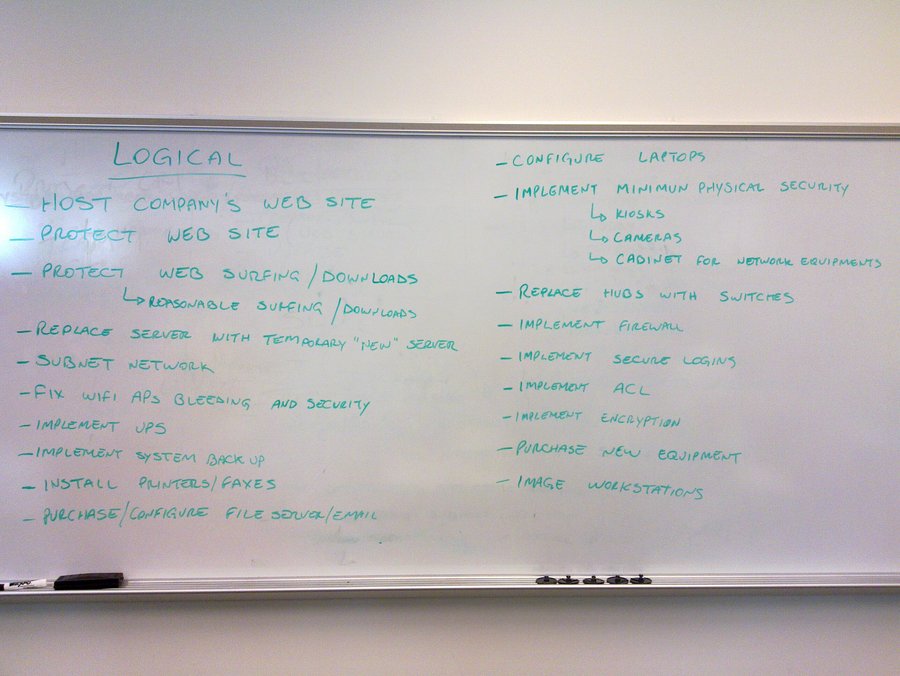 LOGICAL
- HOST COMPANY'S WEB SITE
- PROTECT WEB SITE
- PROTECT WEB SURFING/DOWNLOADS
↳ REASONABLE SURFING/DOWNLOADS
- REPLACE SERVER WITH TEMPORARY "NEW" SERVER
- SUBNET NETWORK
- FIX WIFI APS BLEEDING AND SECURITY
- IMPLEMENT UPS
- IMPLEMENT SYSTEM BACK UP
- INSTALL PRINTERS/FAXES
- PURCHASE/CONFIGURE FILE SERVER/EMAIL
- CONFIGURE LAPTOPS
- IMPLEMENT MINIMUN PHYSICAL SECURITY
↳ KIOSKS
↳ CAMERAS
↳ CABINET FOR NETWORK EQUIPMENTS
- REPLACE HUBS WITH SWITCHES
- IMPLEMENT FIREWALL
- IMPLEMENT SECURE LOGINS
- IMPLEMENT ACL
- IMPLEMENT ENCRYPTION
- PURCHASE NEW EQUIPMENT
- IMAGE WORKSTATIONS